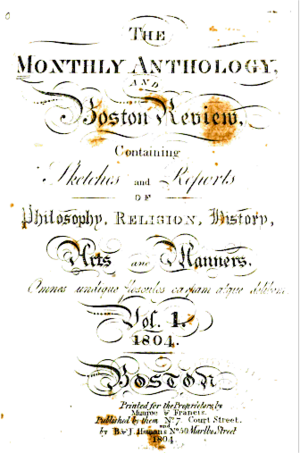 THE
MONTHLY ANTHOLOGY,
AND
Boston Review,
Containing
Sketches and Reports
OF
Philosophy, RELIGION, History,
Arts and Manners.
Omnes undique
Vol. 1.
1804.
BOSTON
Printed for the Proprietors, by
Munroe & Francis.
Published by them No 7 Court Street.
by B. & J. Homans No 50 Marlbo. Street
1804